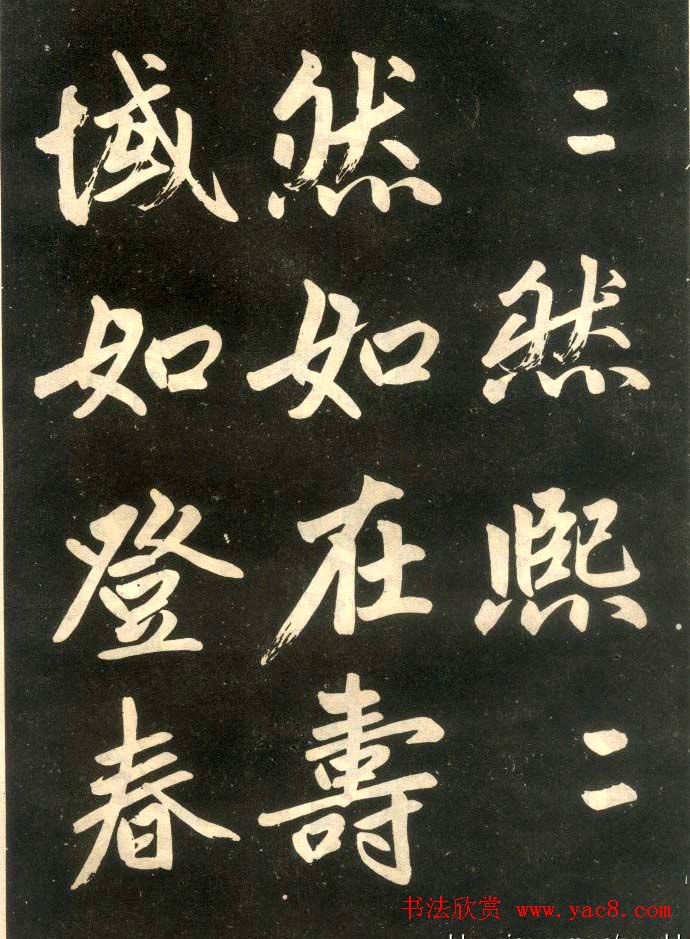 二然熙二
然如在壽
域如登春
书法欣赏 www.yac8.com